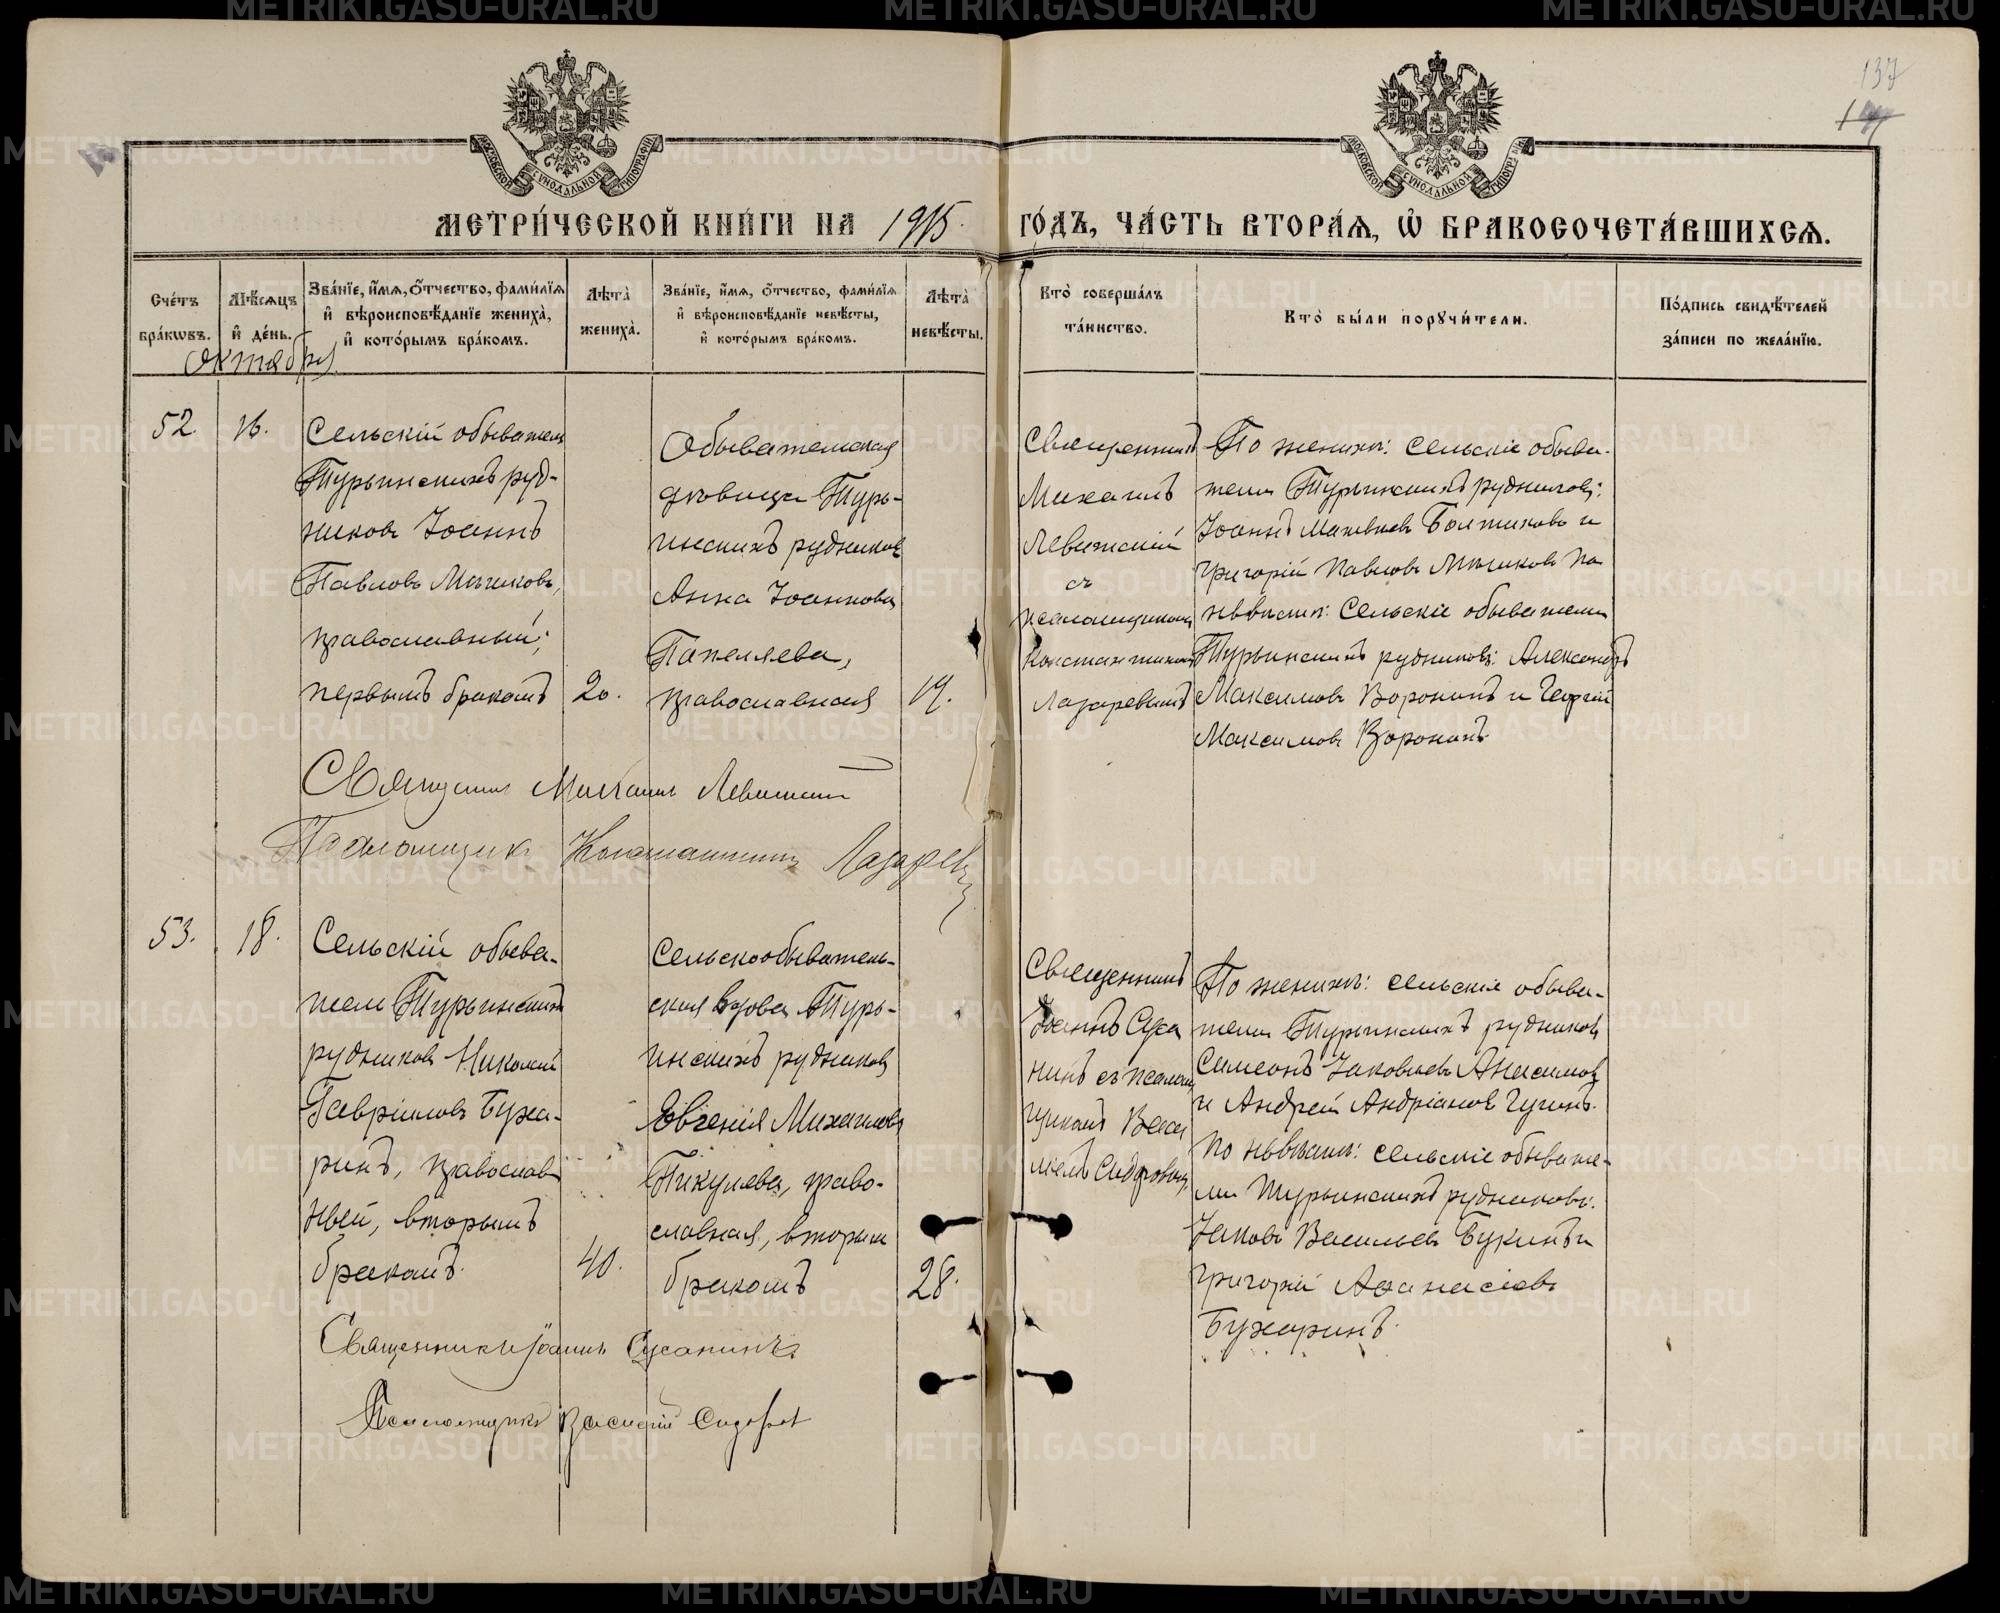 137
МОСКОВСКОЙ СѴНОДАЛЬНОЙ ТИПОГРАФІИ
МОСКОВСКОЙ СѴНОДАЛЬНОЙ ТИПОГРАФІИ
МЕТРИ́ЧЕСКОЙ КНИ́ГИ НА 1915. ГО́ДЪ, ЧА́СТЬ ВТОРА́Ѧ, Ѽ БРАКОСОЧЕТА́ВШИХСѦ.
Сче́тъ бра́кѡвъ.
Мѣ́сѧцъ и҆ де́нь.
Зва́нїе, и҆́мѧ, ѻ҆́тчество, фами́лїѧ и҆ вѣроисповѣ́данїе жениха̀, и҆ кото́рымъ бра́комъ.
Лѣ́та̀ жениха̀.
Зва́нїе, и҆́мѧ, ѻ҆́тчество, фами́лїѧ и҆ вѣроисповѣ́данїе невѣ́сты, и҆ кото́рымъ бра́комъ.
Лѣ́та̀ невѣ́сты.
Кто̀ соверша́лъ та́инство.
Кто̀ бы́ли порꙋчи́тели.
По́дпись свидѣ́телей за́писи по жела́нїю.
Октябрь
52.
16.
Сельскій обыватель
Турьинскихъ руд-
никовъ Іоаннъ
Павловъ Мышковъ,
православный,
первымъ бракомъ
20.
Обывательская
дѣвица Турь-
инскихъ рудниковъ
Анна Іоаннова
православная
19.
Священникъ
Михаилъ
Левитскій
съ
псаломщикомъ
Константиномъ
Лазаревымъ
По женихѣ: сельскіе обыва-
тели Турьинскихъ рудниковъ:
Іоаннъ Матвѣевъ и
Григорій Павловъ Мышковъ по
невѣстѣ: сельскіе обыватели
Турьинскихъ рудниковъ: Александръ
Максимовъ Воронинъ и Георгій
Максимовъ Воронинъ.
Священникъ Михаилъ Левитскій
Псаломщикъ Константинъ Лазаревъ
53.
18.
Сельскій обыва-
тель Турьинскихъ
рудниковъ Николай
Гавріиловъ Буха-
ринъ, православ
ный, вторымъ
бракомъ.
40.
Сельскообыватель-
ская вдова Турь-
инскихъ рудниковъ
Евгенія Михаилова
Пикулева, право-
славная, вторымъ
бракомъ
28.
Священникъ
Іоаннъ Суса
нинъ съ псалом
щикомъ Васи
ліемъ Сидоровымъ
По женихѣ: сельскіе обыва-
тели Турьинскихъ рудниковъ
Симеонъ Іаковлевъ Анисимовъ
и Андрей Андріановъ Чугинъ.
По невѣстѣ: сельскіе обывате-
ли Турьинскихъ рудниковъ:
Іаковъ Васильевъ Букинъ и
Григорій Аѳанасіевъ
Бухаринъ.
Священникъ Іоаннъ Сусанинъ
Псаломщикъ Василій Сидоровъ
METRIKI.GASO-URAL.RU